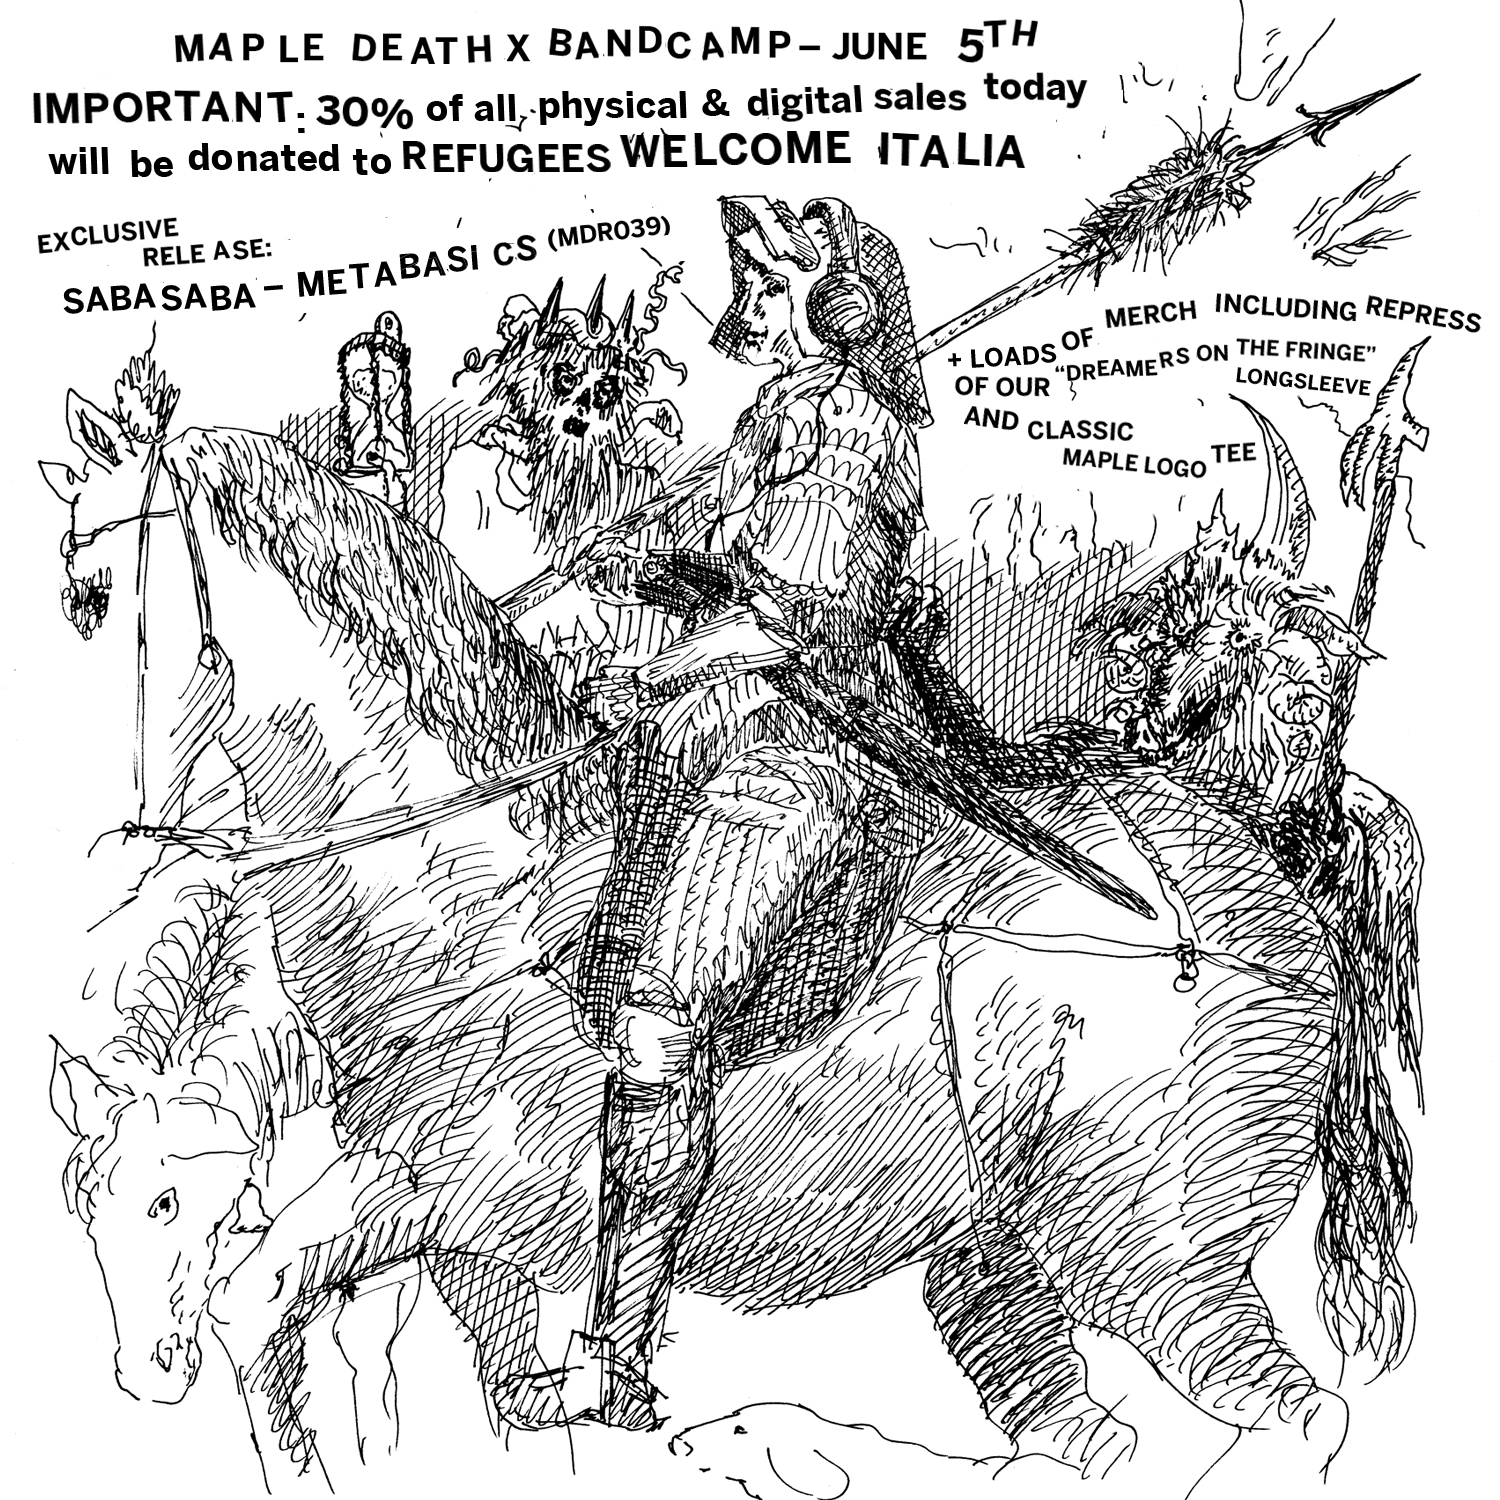 MAPLE DEATH X BANDCAMP – JUNE 5TH
IMPORTANT: 30% of all physical & digital sales today
will be donated to REFUGEES WELCOME ITALIA
EXCLUSIVE
RELEASE:
SABASABA – METABASICS (MDR039)
+ LOADS OF MERCH INCLUDING REPRESS
OF OUR “DREAMERS ON THE FRINGE”
LONGSLEEVE
AND CLASSIC
MAPLE LOGO TEE